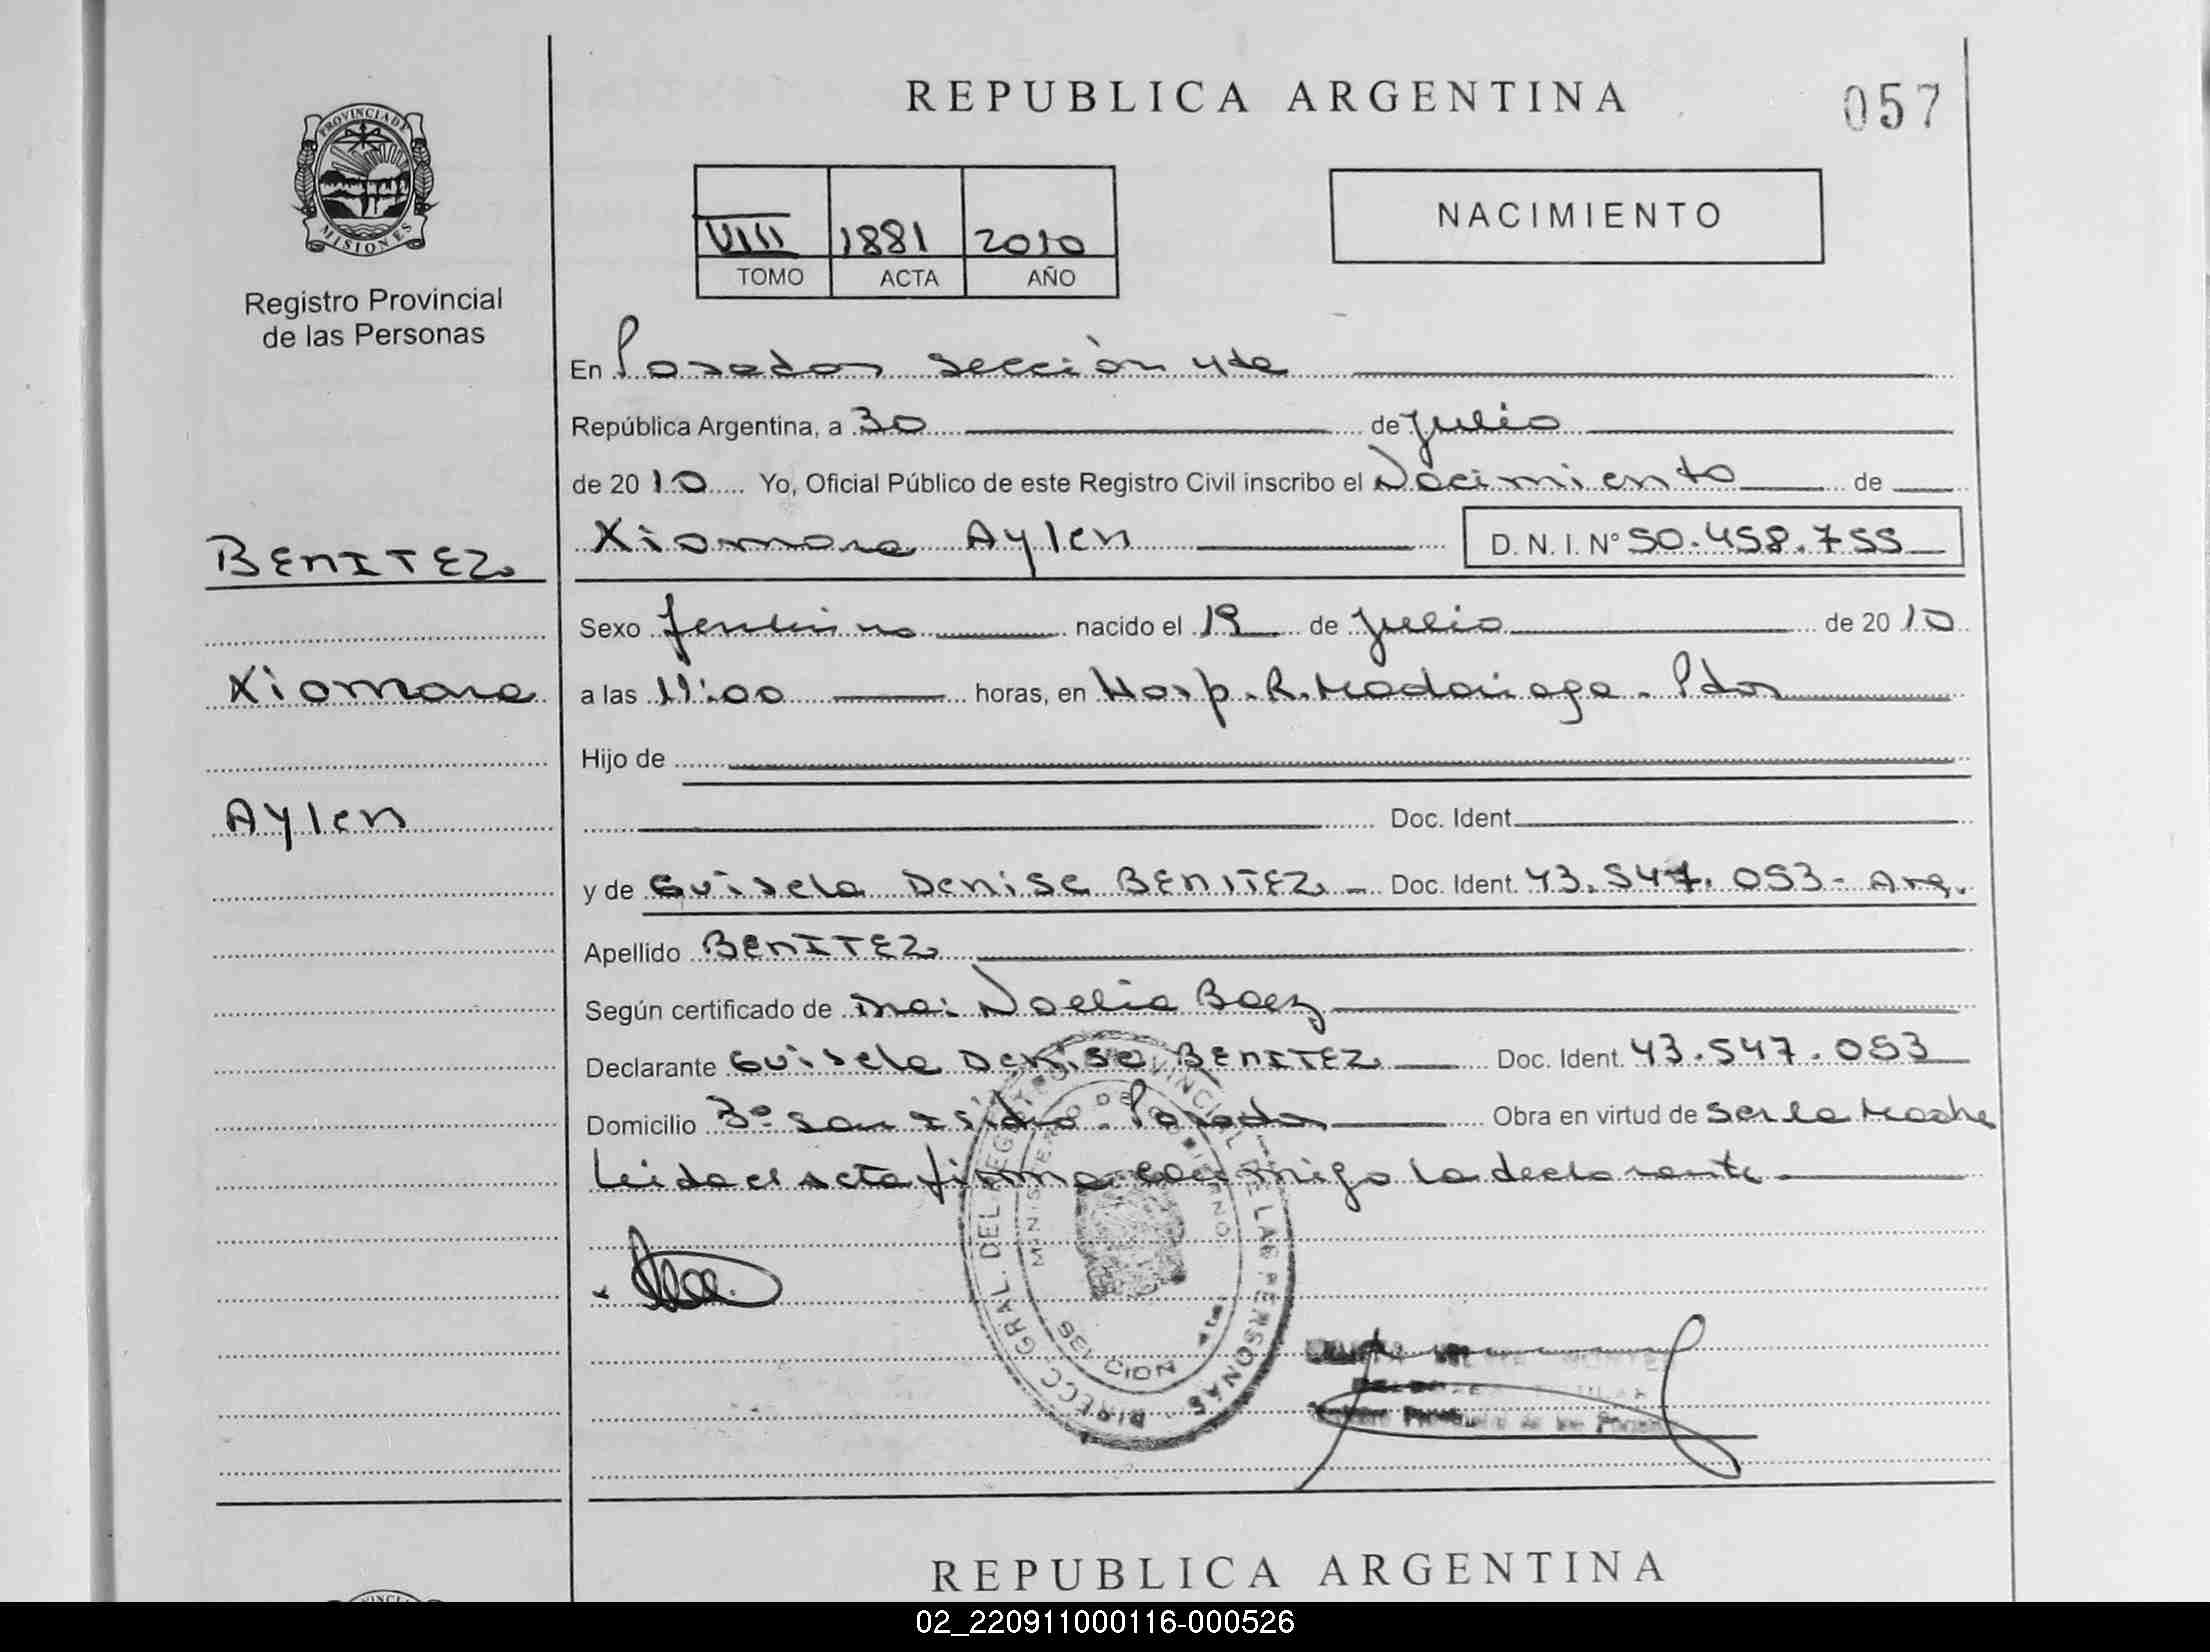 REPUBLICA ARGENTINA
057
PROVINCIA DE
MISIONES
Registro Provincial
de las Personas
VIII 1881 2010
TOMO ACTA AÑO
NACIMIENTO
En Posadas sección 4ta
República Argentina, a 30 de Julio
de 2010 Yo, Oficial Público de este Registro Civil inscribo el Nacimiento de
Xiomara Aylen D. N. I. N° 50.458.755
BENITEZ
Xiomara
Aylen
Sexo femenino nacido el 19 de Julio de 2010
a las 11:00 horas, en Hosp. R. Madariaga. Pdas
Hijo de
Doc. Ident.
y de Guisela Denise BENITEZ Doc. Ident. 43.547.053 - Arg.
Apellido BENITEZ
Según certificado de Noelia Baez
Declarante Guisela Denise BENITEZ Doc. Ident. 43.547.053
Domicilio B° San Isidro - Posadas Obra en virtud de Ser la Madre
Leida el acta firma conmigo la declarante
DIRECC GRAL. DEL REGISTRO PROVINCIAL DE LAS PERSONAS
MINISTERIO DE GOBIERNO
REPUBLICA ARGENTINA
02_220911000116-000526